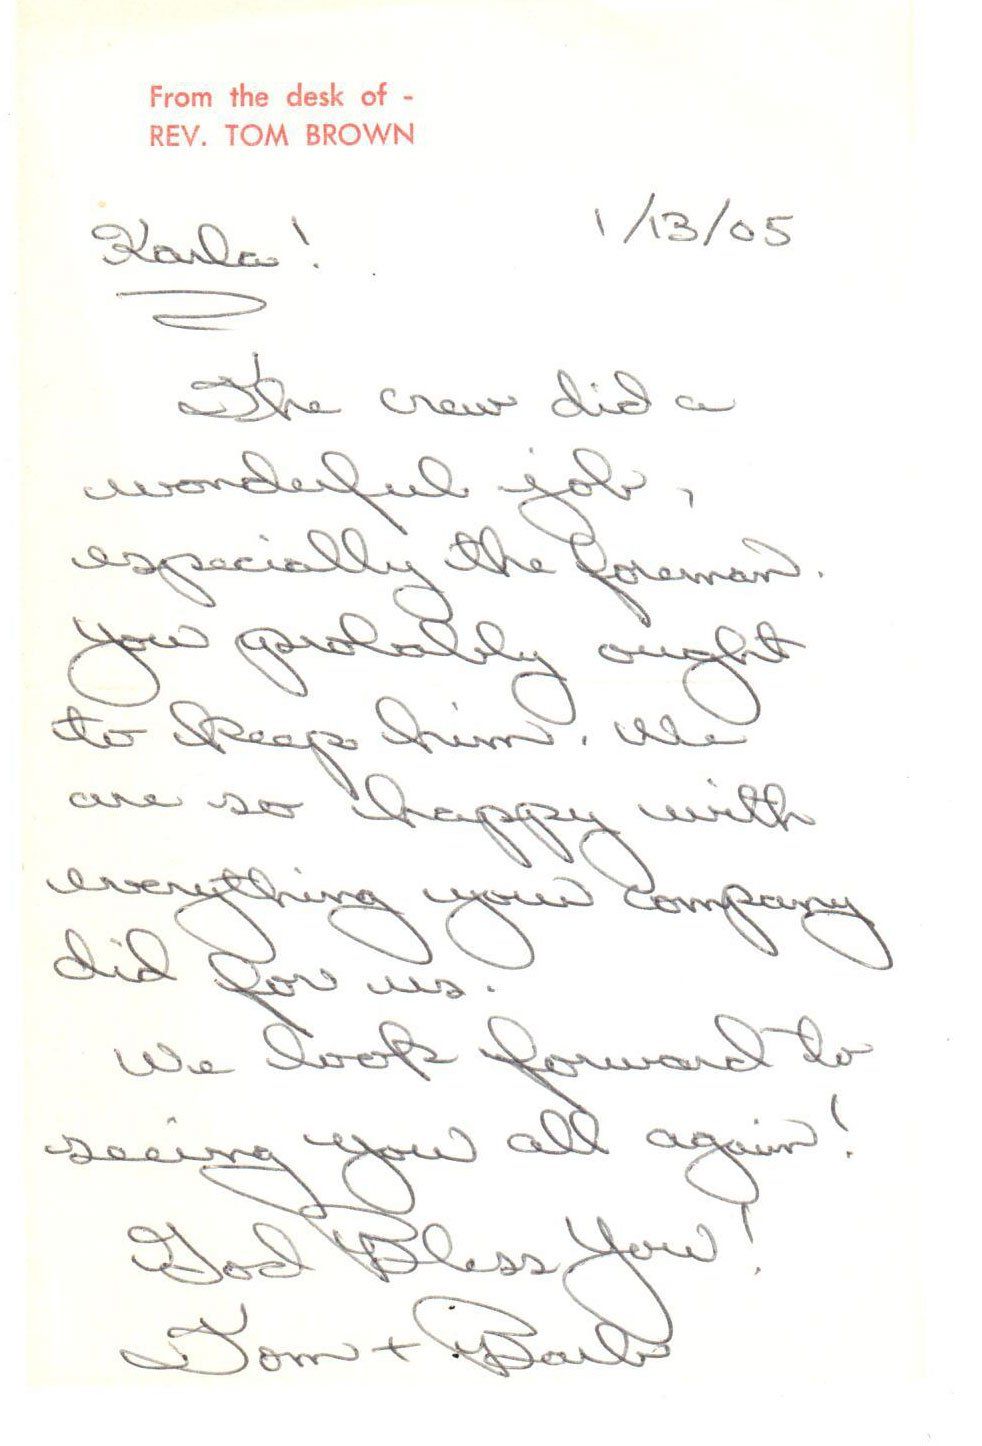 From the desk of -
REV. TOM BROWN
1/13/05
Karla!
The crew did a
wonderful job,
especially the foreman.
You probably ought
to keep him. We
are so happy with
everything your company
did for us.
We look forward to
seeing you all again!
God Bless You!
Tom + Barb